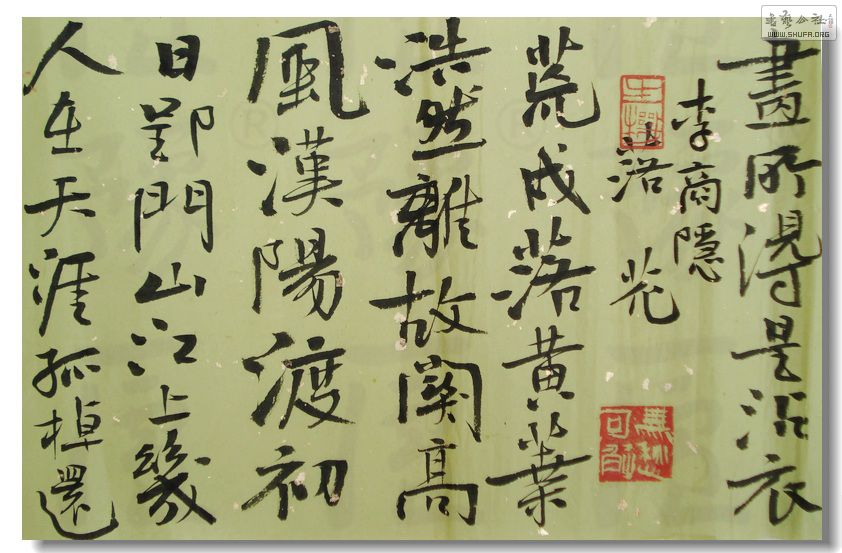 盡所得是沾衣
李商隱
落花
荒戍落黃葉
浩然離故關高
風漢陽渡初
日郢門山江上幾
人在天涯孤棹還
書藝公社
WWW.SHUFA.ORG